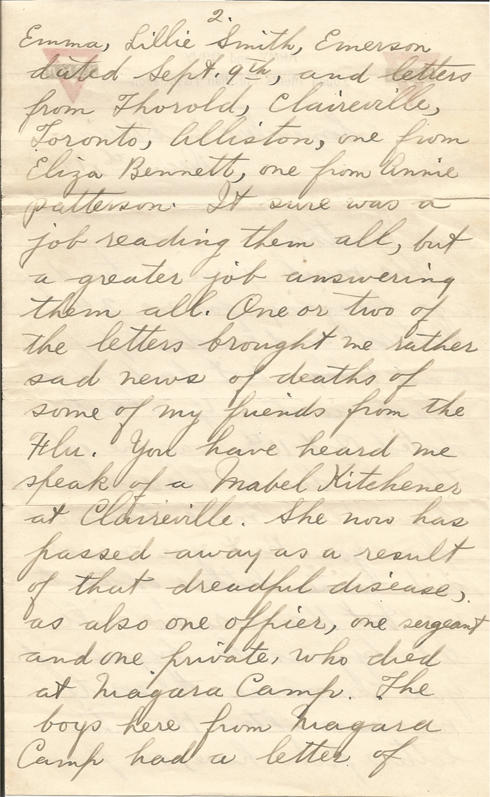 2.
Emma, Lillie Smith, Emerson
dated Sept. 9th, and letters
from Thorold, Claireville,
Toronto, Alliston, one from
Eliza Bennett, one from Annie
Patterson. It sure was a
job reading them all, but
a greater job answering
them all. One or two of
the letters brought me rather
sad news of deaths of
some of my friends from the
Flu. You have heard me
speak of a Mabel Kitchener
at Claireville. She now has
passed away as a result
of that dreadful disease,
as also one offier, one sergeant
and one private, who died
at Niagara Camp. The
boys here from Niagara
Camp had a letter of